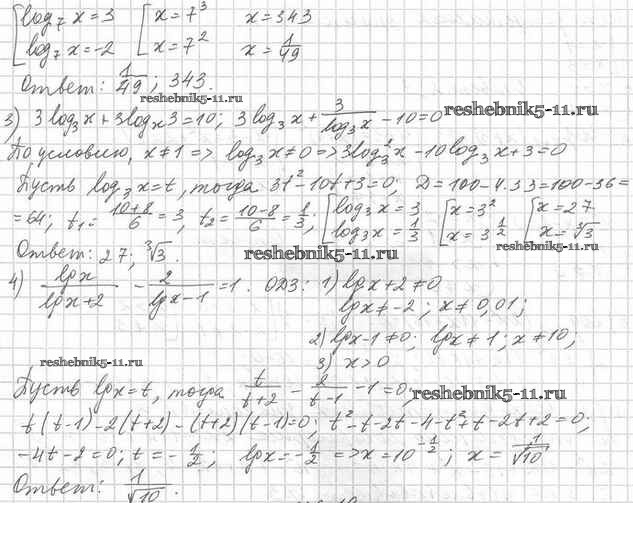 log₇x=3 x=7³ x=343
log₇x=-2 x=7² x=1/49
Ответ: 1/49; 343.
reshebnik5-11.ru
3) 3log₃x+3logₓ3=10; 3log₃x+3/log₃x-10=0 reshebnik5-11.ru
По условию, x≠1 => log₃x≠0 => 3log₃²x-10log₃x+3=0
Пусть log₃x=t, тогда 3t²-10t+3=0; D=100-4·3·3=100-36=
=64; t₁=(10+8)/6=3, t₂=(10-8)/6=1/3; log₃x=3 x=3² x=27
log₃x=1/3 x=3^(1/2) x=∛3
reshebnik5-11.ru
Ответ: 27; ∛3. reshebnik5-11.ru
4) lgx/(lgx+2) - 2/(lgx-1)=1. ОДЗ: 1) lgx+2≠0
lgx≠-2; x≠0,01;
2) lgx-1≠0; lgx≠1; x≠10;
reshebnik5-11.ru 3) x>0
Пусть lgx=t, тогда t/(t+2) - 2/(t-1) -1=0; reshebnik5-11.ru
t(t-1)-2(t+2)-(t+2)(t-1)=0; t²-t-2t-4-t²+t-2t+2=0;
-4t-2=0; t=-1/2; lgx=-1/2 => x=10^(-1/2); x=1/√10
Ответ: 1/√10.